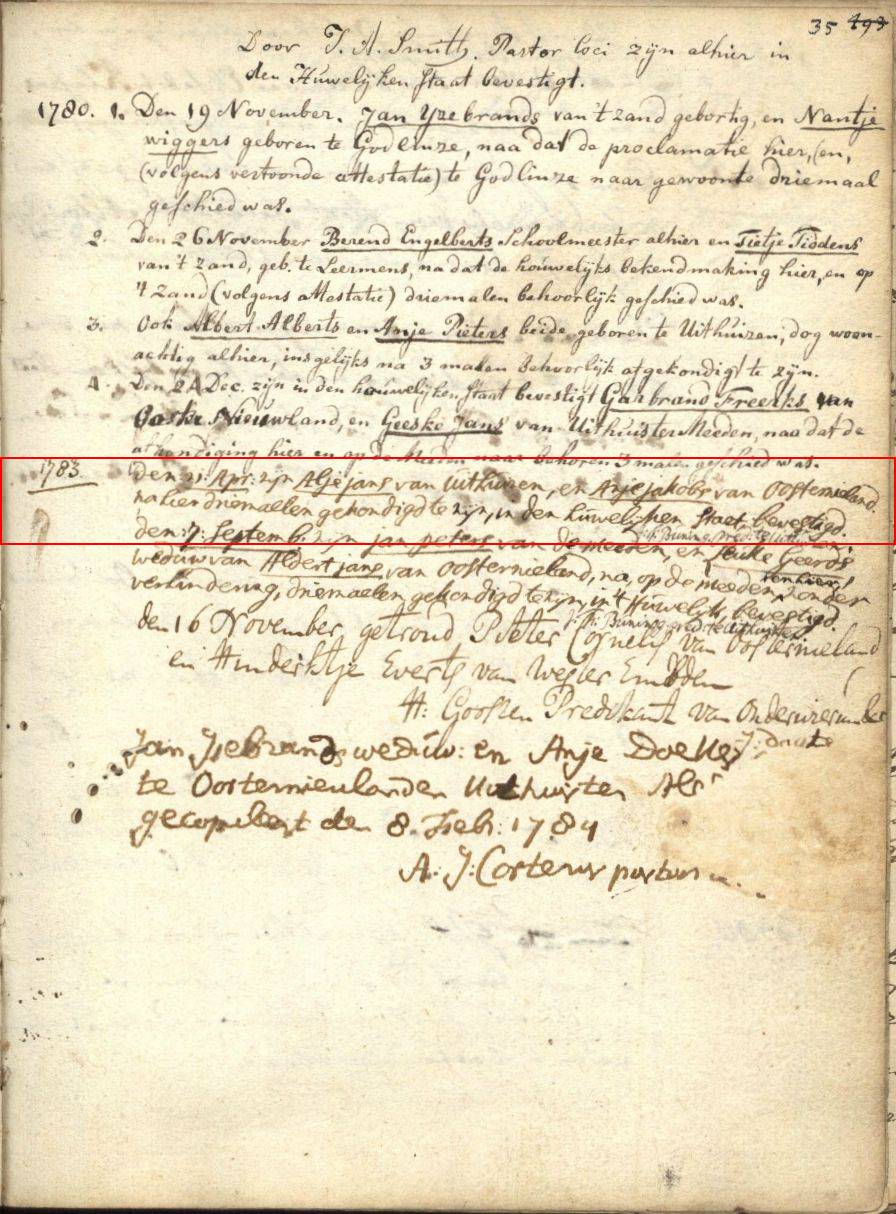 35 493
Door J. A. Smith. Pastor loci zijn alhier in
den Huwelijken staat bevestigt.
1780. 1. Den 19 November. Jan Yzebrands van 't zand geboortig, en Nantje
wiggers geboren te Godlinze, naa dat de proclamatie hier, (en,
(volgens vertoonde attestatie) te Godlinze naar gewoonte driemaal
geschied was.
2. Den 26 November Berend Engelberts Schoolmeester alhier en Tietje Tiddens
van 't zand, geb. te Leermens, na dat de houwelijks bekendmaking hier, en op
't Zand (volgens attestatie) driemalen behoorlijk geschied was.
3. Ook Albert Alberts en Anje Pieters beide geboren te Uithuizen, dog woon-
achtig alhier, insgelijks na 3 malen behoorlijk afgekondigt te zijn.
4. Den 24 Dec. zijn in den houwelijken staat bevestigt Garbrand Freerks van
Ooster Nieuwland, en Geeske Jans van Uithuister Meeden, naa dat de
afkondiging hier en op de Meeden naar behoren 3 malen geschied was.
1783. den 21 Apr: zijn Altje jans van Uithuizen, en Anje jakobs van Oosternieland
na hier driemaelen gekondigd te zijn, in den huwelijken staet bevestigd.
den 7 Septemb. zijn jan peters van de meeden, en Geerds
weduw van Aldert jans, van Oosternieland, na, op de meeden, en hier, zonder
verhindering, driemaelen gekondigd te zijn, in 't Huwelijk bevestigd.
den 16 November getroud Pieter Cornelis van Oosternieland
en Hinderktje Everts van Wester Emden
H: Goossen Predikant van
Jan Jsebrands weduw: en Anje Doekes
te Oosternielander Uithuister
gecopuleert den 8. Feb: 1784
A. J. Costerus pastor